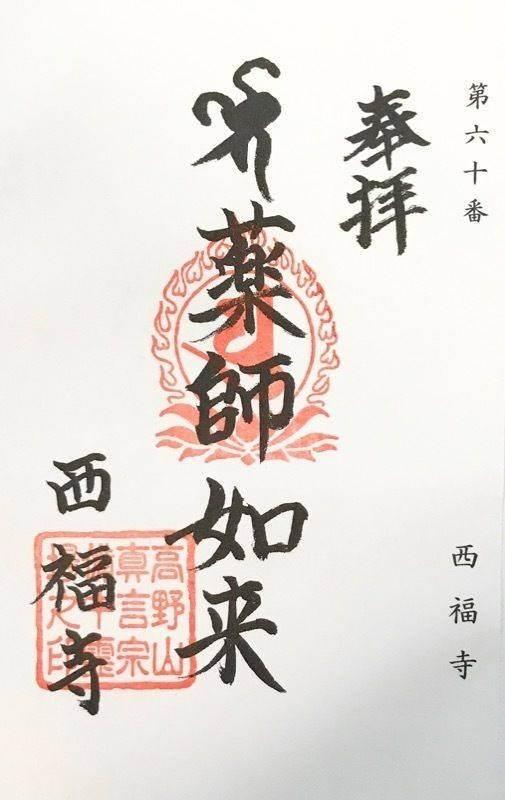 第六十番
奉拝
薬師如来
西福寺
高野山
真言宗
西福寺